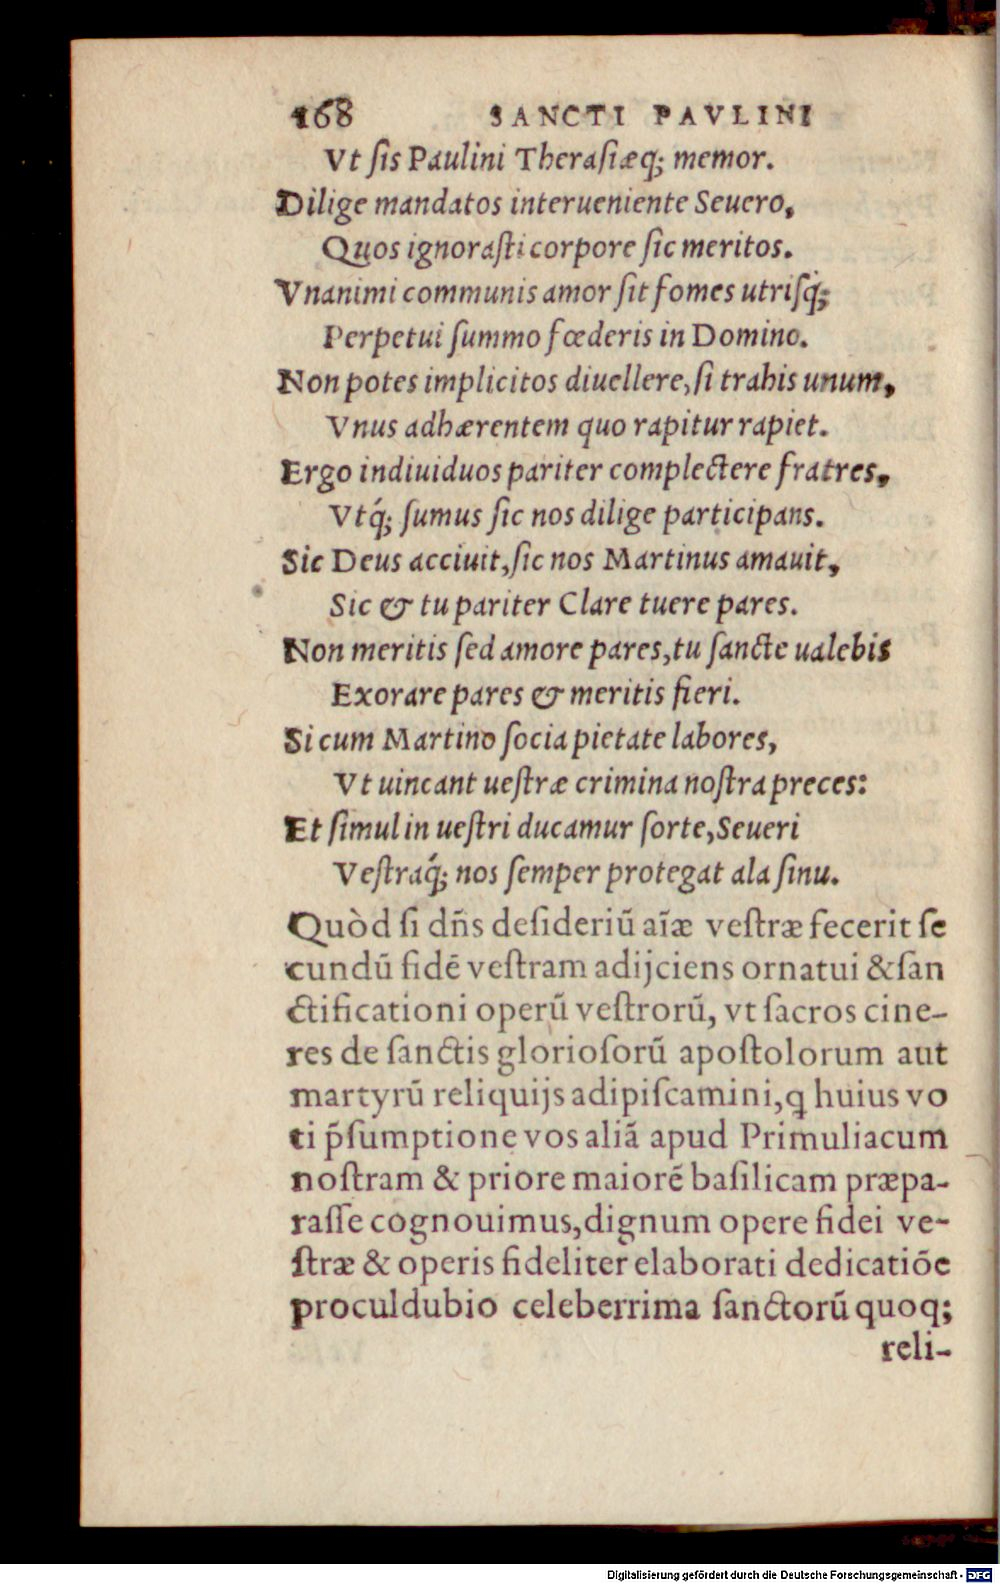 168 SANCTI PAVLINI
Vt ſis Paulini Theraſiæq́; memor.
Dilige mandatos interueniente Seuero,
Quos ignoraſti corpore ſic meritos.
Vnanimi communis amor ſit fomes utriſq́;
Perpetui ſummo fœderis in Domino.
Non potes implicitos diuellere, ſi trahis unum,
Vnus adhærentem quo rapitur rapiet.
Ergo indiuiduos pariter complectere fratres,
Vtq́; ſumus ſic nos dilige participans.
Sic Deus acciuit, ſic nos Martinus amauit,
Sic & tu pariter Clare tuere pares.
Non meritis ſed amore pares, tu ſancte ualebis
Exorare pares & meritis fieri.
Si cum Martino ſocia pietate labores,
Vt uincant ueſtræ crimina noſtra preces:
Et ſimul in ueſtri ducamur ſorte, Seueri
Veſtraq́; nos ſemper protegat ala ſinu.
Quòd ſi dñs deſideriũ aĩæ veſtræ fecerit ſe
cundũ fidẽ veſtram adijciens ornatui & ſan
ctificationi operũ veſtrorũ, vt ſacros cine-
res de ſanctis glorioſorũ apoſtolorum aut
martyrũ reliquijs adipiſcamini, ꝗ huius vo
ti p̃ſumptione vos aliã apud Primuliacum
noſtram & priore maiorẽ baſilicam præpa-
raſſe cognouimus, dignum opere fidei ve-
ſtræ & operis fideliter elaborati dedicatiõe
proculdubio celeberrima ſanctorũ quoq;
reli-
Digitalisierung gefördert durch die Deutsche Forschungsgemeinschaft - DFG